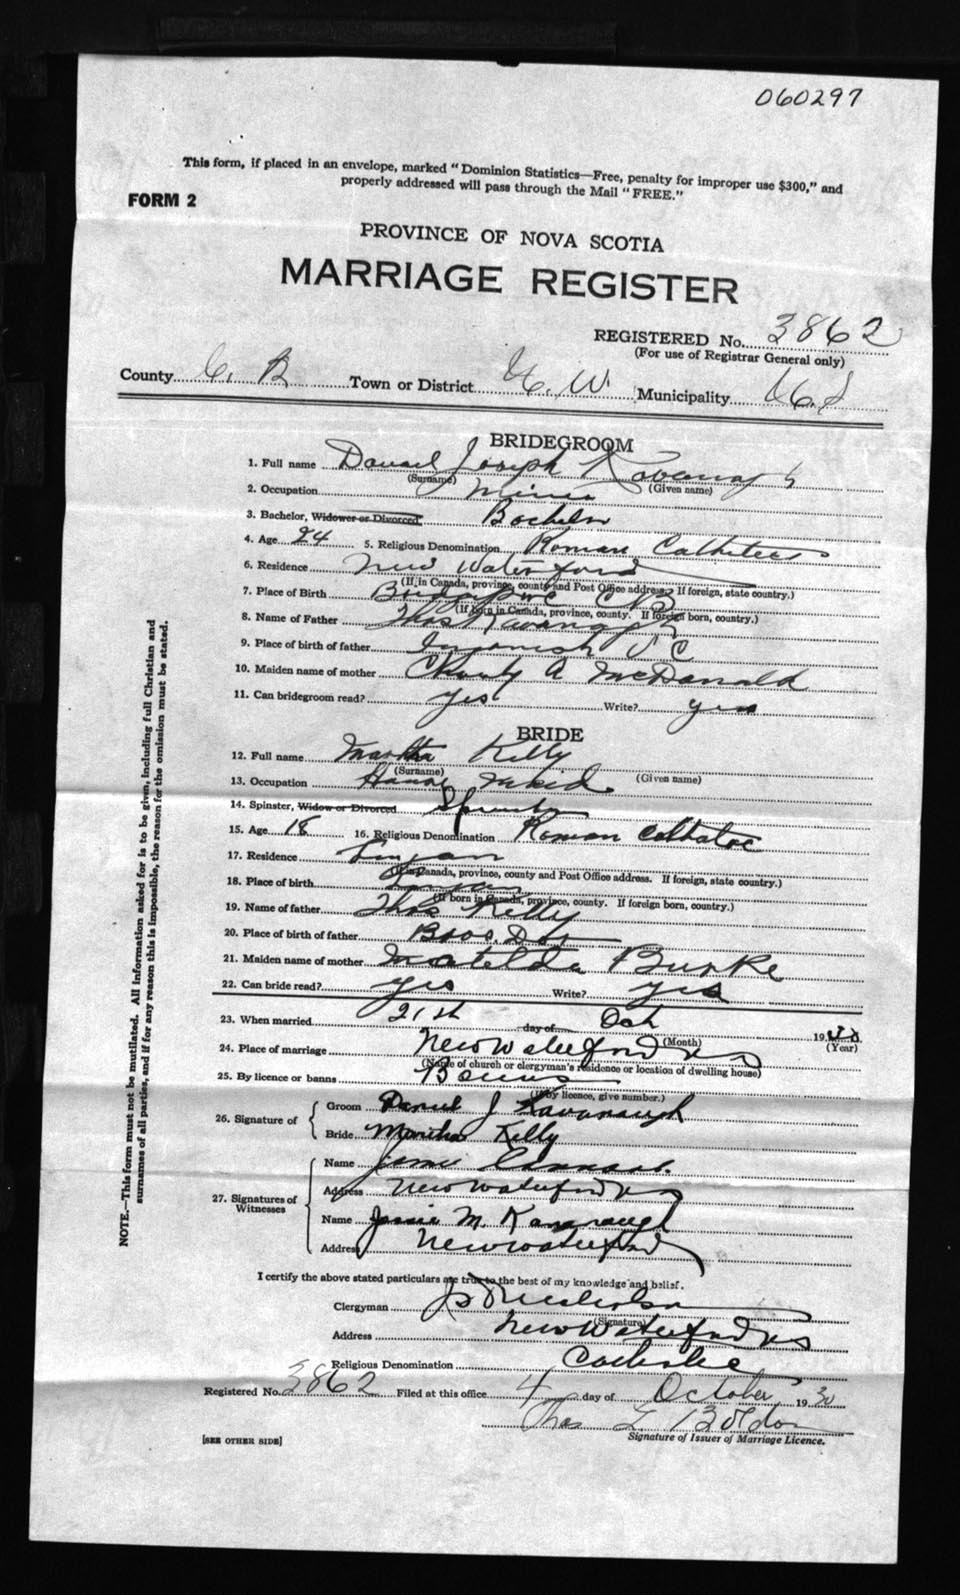 060297
This form, if placed in an envelope, marked "Dominion Statistics—Free, penalty for improper use $300," and
properly addressed will pass through the Mail "FREE."
FORM 2
PROVINCE OF NOVA SCOTIA
MARRIAGE REGISTER
REGISTERED No. 3862
(For use of Registrar General only)
County C. B Town or District N. W. Municipality
BRIDEGROOM
1. Full name Daniel Joseph Kavanagh
(Surname) (Given name)
2. Occupation Miner
3. Bachelor, Widower or Divorced Bachelor
4. Age 24 5. Religious Denomination Roman
6. Residence New Waterford
(If in Canada, province, county and Post Office address. If foreign, state country.)
7. Place of Birth C B
(If born in Canada, province, county. If foreign born, country.)
8. Name of Father Thos Kavanagh
9. Place of birth of father
10. Maiden name of mother A McDonald
11. Can bridegroom read? yes Write? yes
BRIDE
12. Full name Martha Kelly
(Surname) (Given name)
13. Occupation
14. Spinster, Widow or Divorced
15. Age 18 16. Religious Denomination Roman
17. Residence Lingan
(If in Canada, province, county and Post Office address. If foreign, state country.)
18. Place of birth Lingan
(If born in Canada, province, county. If foreign born, country.)
19. Name of father Thos Kelly
20. Place of birth of father
21. Maiden name of mother Matelda Burke
22. Can bride read? yes Write? yes
23. When married 21st day of Oct 19
(Month) (Year)
24. Place of marriage New Waterford NS
(Name of church or clergyman's residence or location of dwelling house)
25. By licence or banns
(If by licence, give number.)
26. Signature of
Groom Daniel J Kavanaugh
Bride Martha Kelly
27. Signatures of
Witnesses
Name
Address New Waterford NS
Name Jessie M. Kavanaugh
Address New Waterford
I certify the above stated particulars are true to the best of my knowledge and belief.
Clergyman
(Signature)
Address New Waterford NS
Religious Denomination
Registered No. 3862 Filed at this office 4 day of October 1930
Thos
Signature of Issuer of Marriage Licence.
[SEE OTHER SIDE]
NOTE.—This form must not be mutilated. All information asked for is to be given, including full Christian and
surnames of all parties, and if for any reason this is impossible, the reason for the omission must be stated.